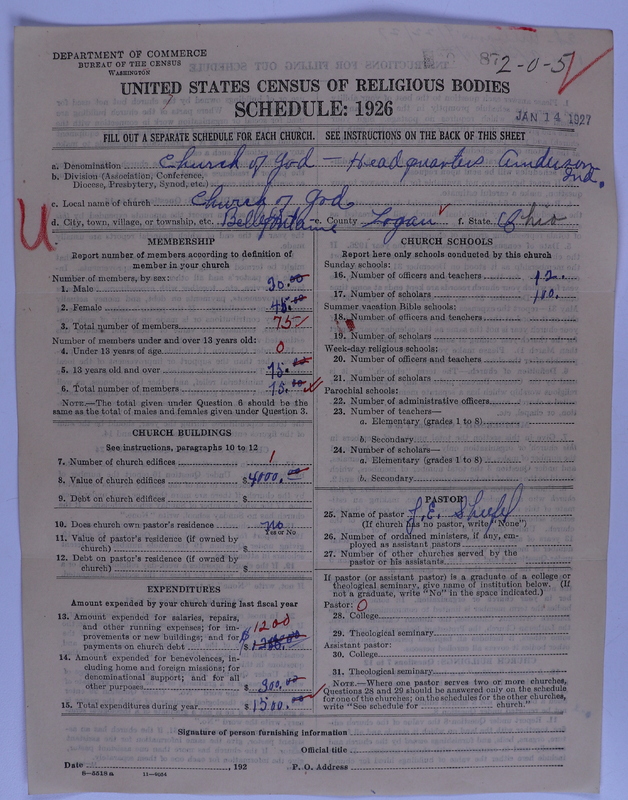 DEPARTMENT OF COMMERCE
BUREAU OF THE CENSUS
WASHINGTON
2-0-5
UNITED STATES CENSUS OF RELIGIOUS BODIES
SCHEDULE: 1926
JAN 14 1927
FILL OUT A SEPARATE SCHEDULE FOR EACH CHURCH. SEE INSTRUCTIONS ON THE BACK OF THIS SHEET
a. Denomination Church of God - Headquarters Anderson Ind.
b. Division (Association, Conference, Diocese, Presbytery, Synod, etc.)
c. Local name of church Church of God
d. City, town, village, or township, etc. Bellefontaine e. County Logan f. State Ohio
U
MEMBERSHIP
Report number of members according to definition of
member in your church
Number of members, by sex:
1. Male 30.00
2. Female 45.00
3. Total number of members 75
Number of members under and over 13 years old:
4. Under 13 years of age 0
5. 13 years old and over 75.00
6. Total number of members 75.00
NOTE.—The total given under Question 6 should be the
same as the total of males and females given under Question 3.
CHURCH BUILDINGS
See instructions, paragraphs 10 to 12
7. Number of church edifices 1
8. Value of church edifices $4000.00
9. Debt on church edifices $
10. Does church own pastor's residence no
Yes or No
11. Value of pastor's residence (if owned by
church) $
12. Debt on pastor's residence (if owned by
church) $
EXPENDITURES
Amount expended by your church during last fiscal year
13. Amount expended for salaries, repairs,
and other running expenses; for im-
provements or new buildings; and for
payments on church debt $ 1200
14. Amount expended for benevolences, in-
cluding home and foreign missions; for
denominational support; and for all
other purposes 300.00
15. Total expenditures during year $ 1500.00
CHURCH SCHOOLS
Report here only schools conducted by this church
Sunday schools:
16. Number of officers and teachers 12.
17. Number of scholars 100.
Summer vacation Bible schools:
18. Number of officers and teachers
19. Number of scholars
Week-day religious schools:
20. Number of officers and teachers
21. Number of scholars
Parochial schools:
22. Number of administrative officers
23. Number of teachers—
a. Elementary (grades 1 to 8)
b. Secondary
24. Number of scholars—
a. Elementary (grades 1 to 8)
b. Secondary
PASTOR
25. Name of pastor
(If church has no pastor, write "None")
26. Number of ordained ministers, if any, em-
ployed as assistant pastors
27. Number of other churches served by the
pastor or his assistants
If pastor (or assistant pastor) is a graduate of a college or
theological seminary, give name of institution below. (If
not a graduate, write "No" in the space indicated.)
Pastor: 0
28. College
29. Theological seminary
Assistant pastor:
30. College
31. Theological seminary
NOTE.—Where one pastor serves two or more churches,
Questions 28 and 29 should be answered only on the schedule
for one of the churches; on the schedules for the other churches,
write "See schedule for church."
Signature of person furnishing information
Official title
Date , 192 P. O. Address
8-5518a 11-9034